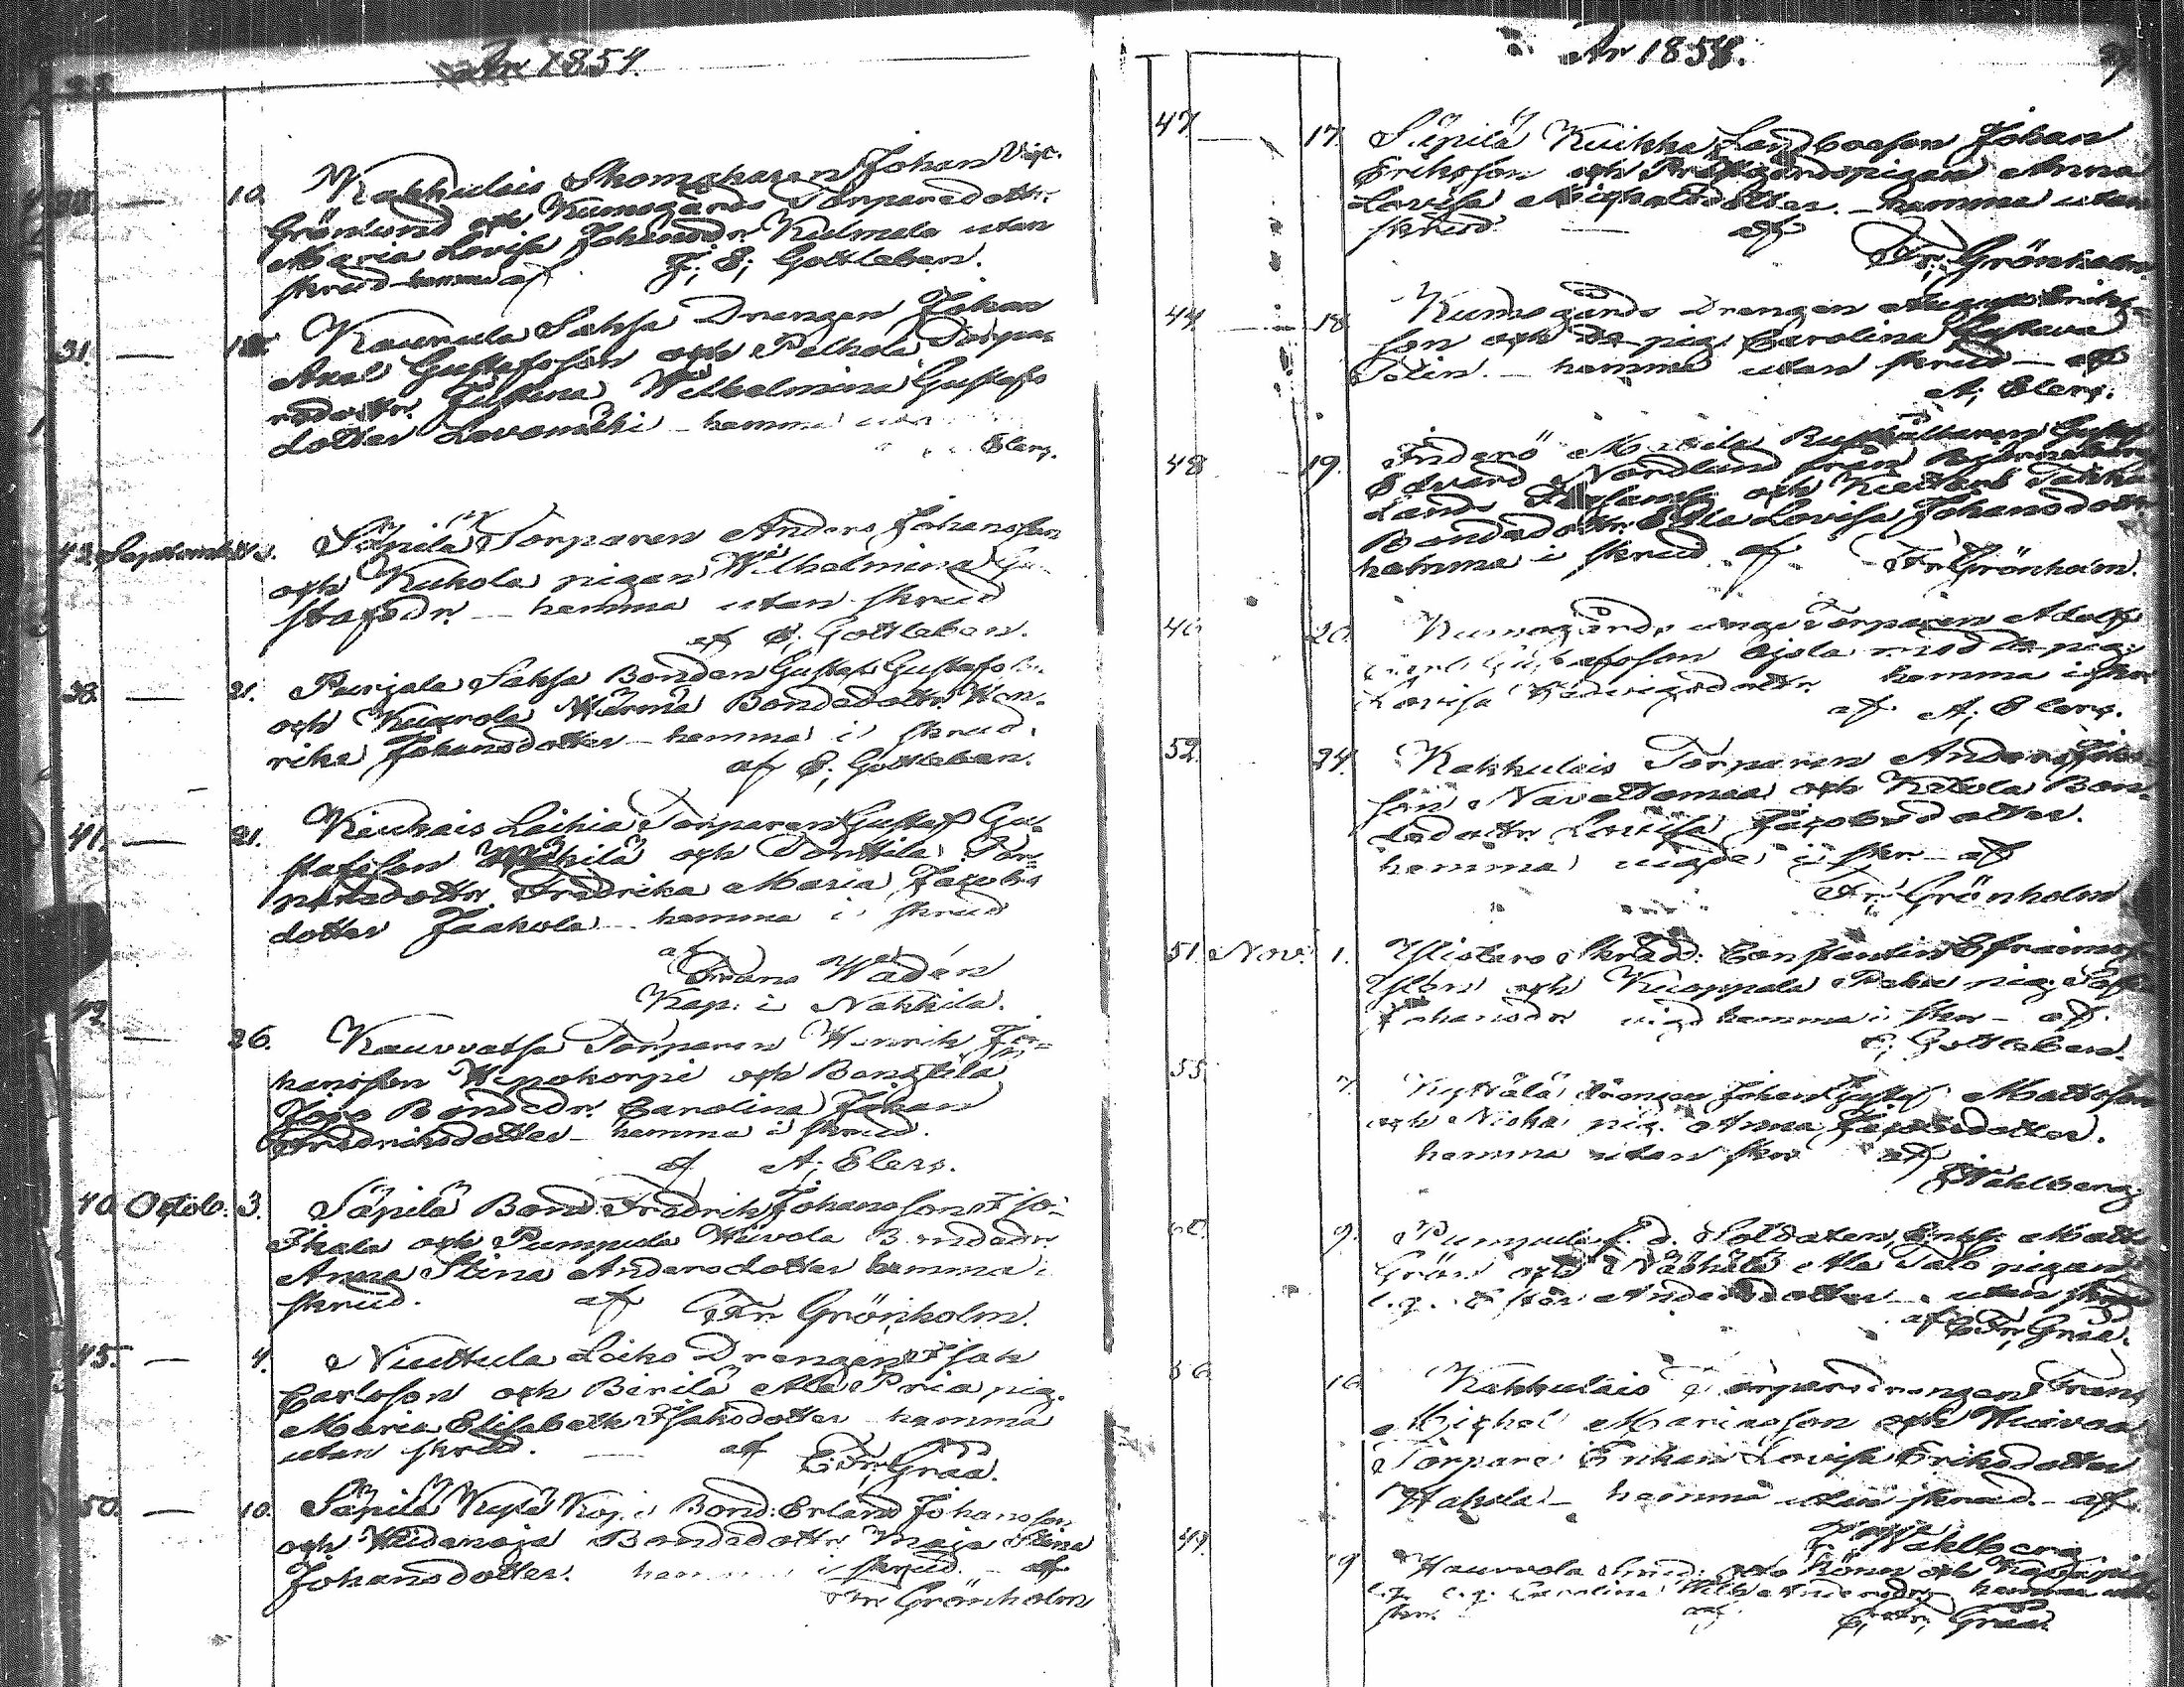 År 1854.
10. Kakkulais Skomakaren Johan Vict.
Grönlund och Kumogårds Torparedottr.
Maria Lovisa Johansdr. Kulmala utan
skrud hemma af F; E; Gottleben.
31. — Kaurula Saksa Drengen Johan
Axel Gustafsson och Palhola Torpa-
redottr. Justina Wilhelmina Gustafs
dotter Lavamäki - hemma utan
Elers.
42. September Säpilä Torparen Anders Johansson
och Kukola pigan Wilhelmina Gu-
stafsdr. — hemma utan skrud
af E; Gottleben.
38. — 21. Purjala Saksa Bonden Gustaf Gustafsson
och Kuurola Wärmä Bondedottr. Hen-
rika Johansdotter - hemma i skrud.
af E; Gottleben.
41. — 21. Kiukais Laihia Torparen Gustaf Gu-
stafsson och Tonttila Tor-
paredottr. Fredrika Maria Jacobs
dotter Jaakola - hemma i skrud
af
Frans Wadén
Kap: i Nakkila.
— 26. Kauvatsa Torparen Henrik Jo-
hansson och Bengtilä
Jojo Bondedr. Carolina Johan
Fredriksdotter - hemma i skrud.
af A; Elers.
40. Octob. 3. Säpilä Bond. Fredrik Johansson Iso-
Ikala och Pumpula Wuvola Bondedr
Anna Stina Andersdotter hemma i
skrud. af Fr. Grönholm.
45. — 4. Niuttula Loiko Drengen Isak
Carlsson och Birilä Ala Pria pig.
Maria Elisabeth Isaksdotter - hemma
utan skrud. — af C: Fr; Graa.
50. — 10. Säpilä Kylä Kap. i Bond: Erland Johansson
och Heidenoja Bondedottr Maja Stina
Johansdotter. hemma i skrud. - af
Fr Grönholm
År 1854.
47. — 17. Säpilä Kuikka Landboeson Johan
Eriksson och Prestgårdspigan Anna
Lovisa Michelsdotter. — hemma utan
skrud — af
Fr; Grönholm.
44 — 18 Kumogårds Drengen August Eriks-
son och Do pig. Carolina Gustava
Polin. — hemma utan skrud — af
A; Elers.
48 — 19. Inderö Mattila Rusthållaren Gustaf
Edvard Nordlund från Björneborgs
Lands och Kiettare Takku
Bondedottr. Ulla Lovisa Johansdotter
hemma i skrud af Fr Grönholm.
46 20. Kumogårds unge Torparen Adolf
Gustafsson Ojola med Do pig:
Lovisa Hedvigsdottr. hemma i skr
af A; Elers.
52. 24. Kakkulais Torparen Anders Johans-
son Navettamaa och Kukola Bon-
dedottr Lovisa Jacobsdotter.
hemma vigde i skr. af
Fr; Grönholm
51. Nov. 1. Ylistaro Skrädd: Constantin Efraims-
son och Kuoppala pig: Sof
Johansdr vigd hemma i skr - af.
E; Gottleben.
55. 7. Kyttälä Drengen Johan Gustaf Mattsson
och Niska pig. Anna Jacobsdotter.
hemma utan skr af
Wahlberg
60. 9. Pumpula f. d. Soldaten, Enkl: Matts
Grön och Näkkilä Ala Talo pigan
Andersdotter — utan skrud
af C; Fr; Graa.
56 16. Kakkulais Torparedrengen Frans
Michel Mariasson och Huivoa
Torpare Enkan Lovisa Eriksdotter
Hakola - hemma utan skrud. - af
Wahlberg
49. 19 Haurola och
Carolina hemma utan
skr. af C; Fr; Graa